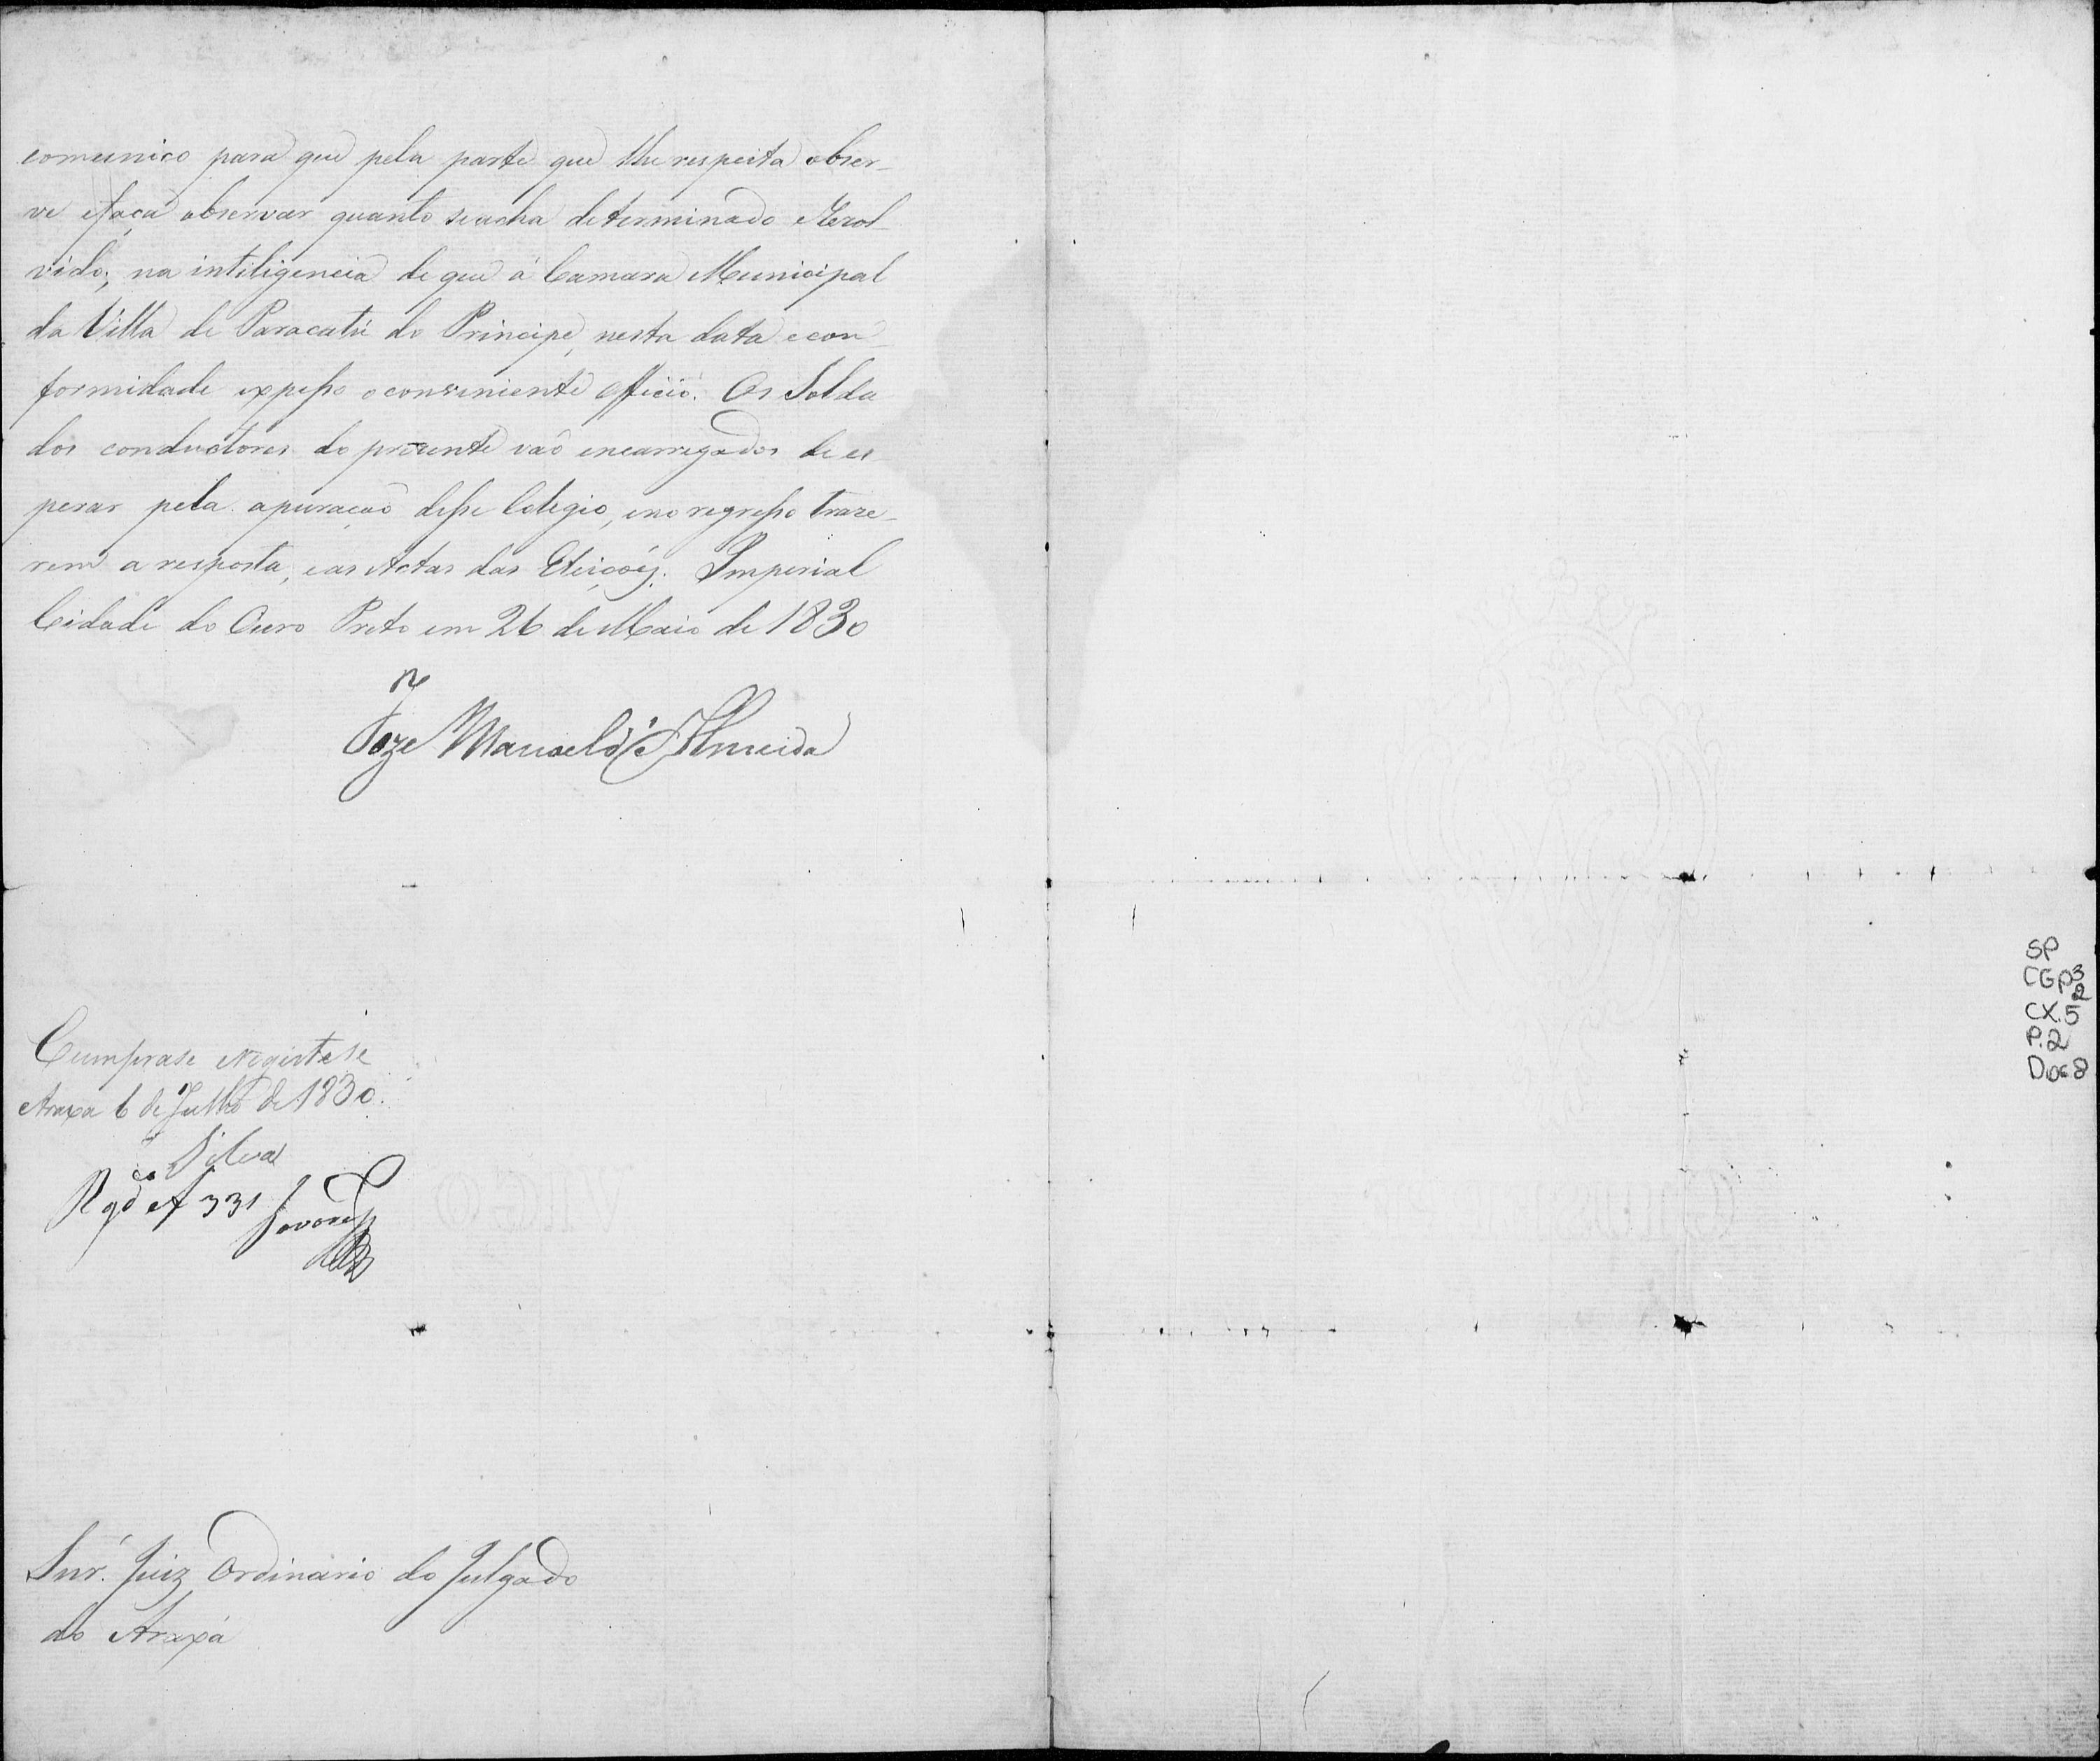 comunico para que pela parte que lhe respeita obser-
ve efaça observar quanto seacha determinado eResol-
vido; na inteligencia de que á Camara Municipal
da Villa de Paracatú do Principe, nesta data econ-
formidade expesso oconveniente officio. Os Solda
dos conductores do prezente vaõ encarregados de es
perar pela apuraçaõ desse Colegio, eno regresso traze-
rem a resposta, eas Actas das Eleiçoẽs. Imperial
Cidade do Ouro Preto em 26 de Maio de 1830
Joze Manoel d'Almeida
Cumprase eRegistese
Araxa 6 de Julho de 1830.
Silva
Rgdo Af 331
Snr. Juiz Ordinario do Julgado
do Araxá
VIGO
SP
CGP3
2
CX.5
P.2
Doc 8